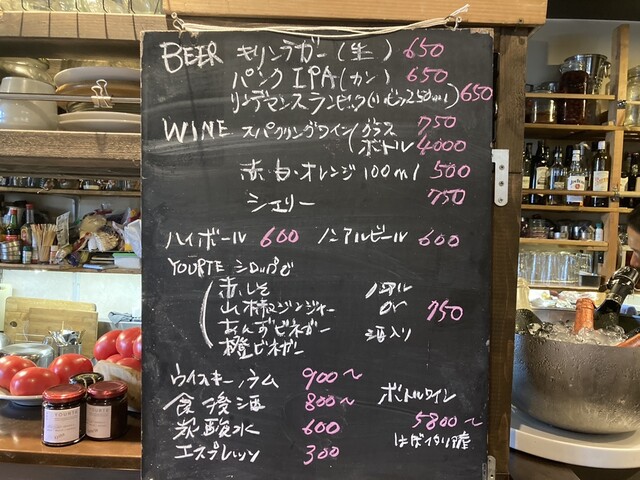 BEER キリンラガー(生) 650
パンクIPA(カン) 650
リンデマンス ランビック(小ビン250ml) 650
WINE スパークリングワイン グラス 750
ボトル 4000
赤・白・オレンジ 100ml 500
シェリー 750
ハイボール 600 ノンアルビール 600
YOURTE シロップで
赤しそ ノンアル
山椒ジンジャー or 750
あんずビネガー 酒入り
橙ビネガー
ウイスキー/ラム 900~
食後酒 800~ ボトルワイン
炭酸水 600 5800~
エスプレッソ 300 ほぼイタリア産